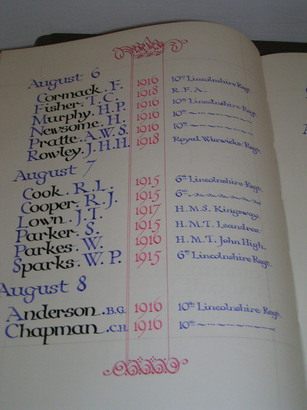 August 6
Cormack. F. 1916 10th Lincolnshire Regt.
Fisher. T. C. 1918 R. F. A.
Murphy. H. P. 1916 10th Lincolnshire Regt.
Newsome. H. 1916 10th
Pratte. A. W. S. 1916 10th
Rowley. J. H. H. 1918 Royal Warwicks. Regt.
August 7
Cook. R. L. 1915 6th Lincolnshire Regt.
Cooper. R. J. 1915 6th
Lown. J. T. 1917 H. M. S. Kingsway.
Parker. S. 1915 H. M. T. Leandros.
Parkes. W. 1916 H. M. T. John High.
Sparks. W. P. 1915 6th Lincolnshire Regt.
August 8
Anderson. B.G. 1916 10th Lincolnshire Regt.
Chapman. C.H. 1916 10th